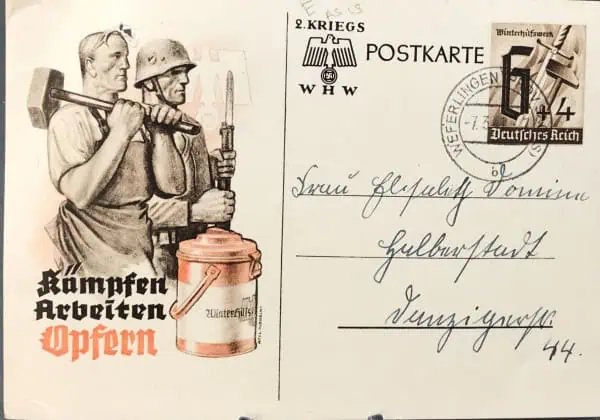 E AS LS
2. KRIEGS
WHW
POSTKARTE
Winterhilfswerk
6+4
Deutsches Reich
WEFERLINGEN
-7.3.
Kämpfen
Arbeiten
Opfern
Winterhilfs
Frau Elisabeth Domine
Halberstadt
Danzigerstr.
44.